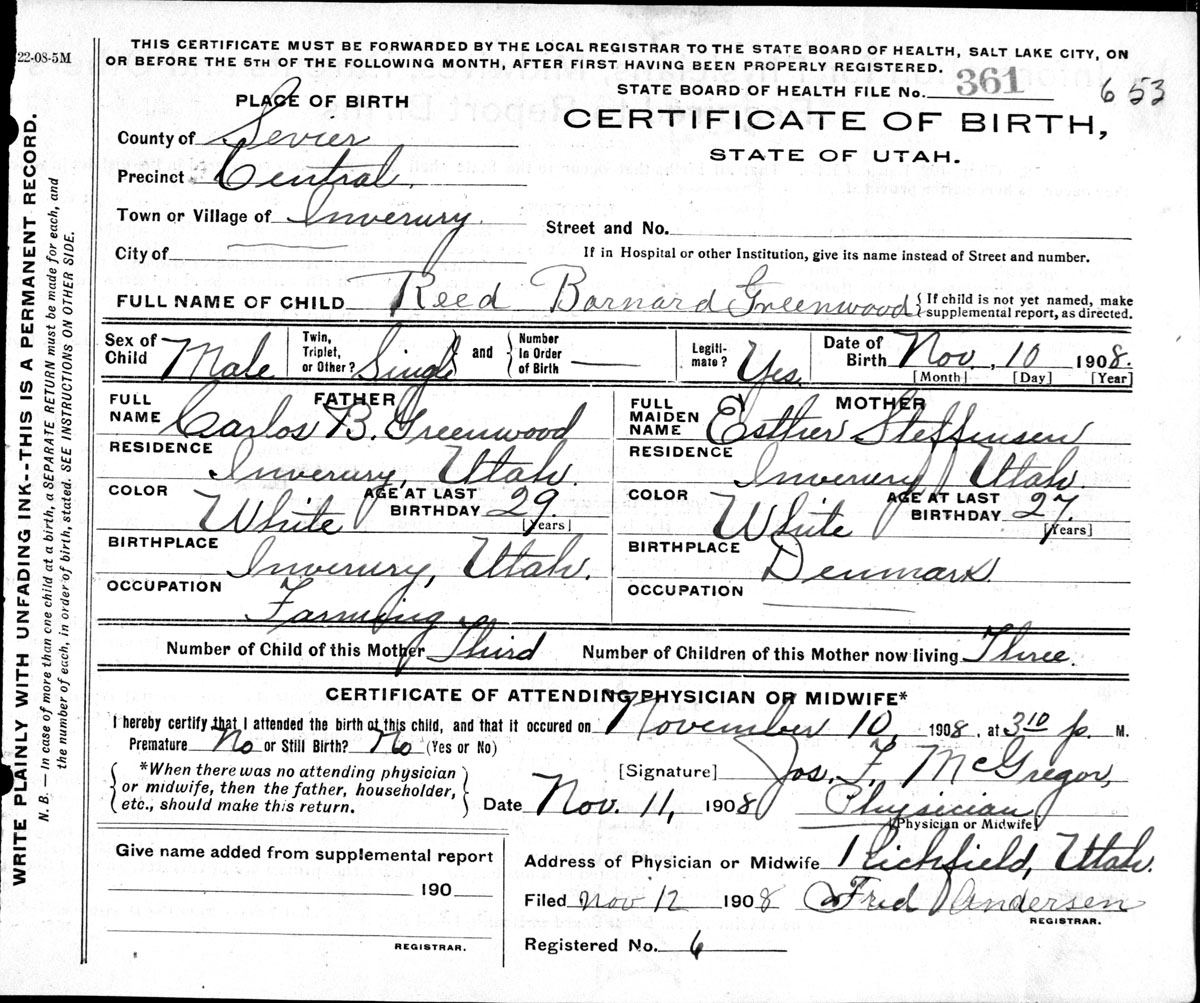 22-08-5M
THIS CERTIFICATE MUST BE FORWARDED BY THE LOCAL REGISTRAR TO THE STATE BOARD OF HEALTH, SALT LAKE CITY, ON
OR BEFORE THE 5TH OF THE FOLLOWING MONTH, AFTER FIRST HAVING BEEN PROPERLY REGISTERED.
STATE BOARD OF HEALTH FILE No. 361 653
PLACE OF BIRTH
CERTIFICATE OF BIRTH,
STATE OF UTAH.
County of Sevier
Precinct Central.
Town or Village of Inverury.
Street and No.
City of
If in Hospital or other Institution, give its name instead of Street and number.
FULL NAME OF CHILD Reed Barnard Greenwood { If child is not yet named, make
supplemental report, as directed.
Sex of Child Male Twin, Triplet, or Other? Single and Number in Order of Birth Legiti-mate? Yes. Date of Birth Nov., 10 1908.
[Month] [Day] [Year]
FATHER
FULL NAME Carlos B. Greenwood
RESIDENCE Inverury, Utah.
COLOR White AGE AT LAST BIRTHDAY 29.
[Years]
BIRTHPLACE Inverury, Utah.
OCCUPATION Farming
MOTHER
FULL MAIDEN NAME Esther Steffensen
RESIDENCE Inverury, Utah.
COLOR White AGE AT LAST BIRTHDAY 27.
[Years]
BIRTHPLACE Denmark
OCCUPATION
Number of Child of this Mother Third Number of Children of this Mother now living Three.
CERTIFICATE OF ATTENDING PHYSICIAN OR MIDWIFE*
I hereby certify that I attended the birth of this child, and that it occured on November 10, 1908, at 3 10 p. M.
Premature No or Still Birth? No (Yes or No)
*When there was no attending physician
or midwife, then the father, householder,
etc., should make this return.
[Signature] Jos. F. McGregor,
Date Nov. 11, 1908 Physician
[Physician or Midwife]
Give name added from supplemental report
190
REGISTRAR.
Address of Physician or Midwife Richfield, Utah.
Filed Nov 12 1908 Fred Andersen
REGISTRAR.
Registered No. 6
WRITE PLAINLY WITH UNFADING INK--THIS IS A PERMANENT RECORD.
N. B. — In case of more than one child at a birth, a SEPARATE RETURN must be made for each, and
the number of each, in order of birth, stated. SEE INSTRUCTIONS ON OTHER SIDE.